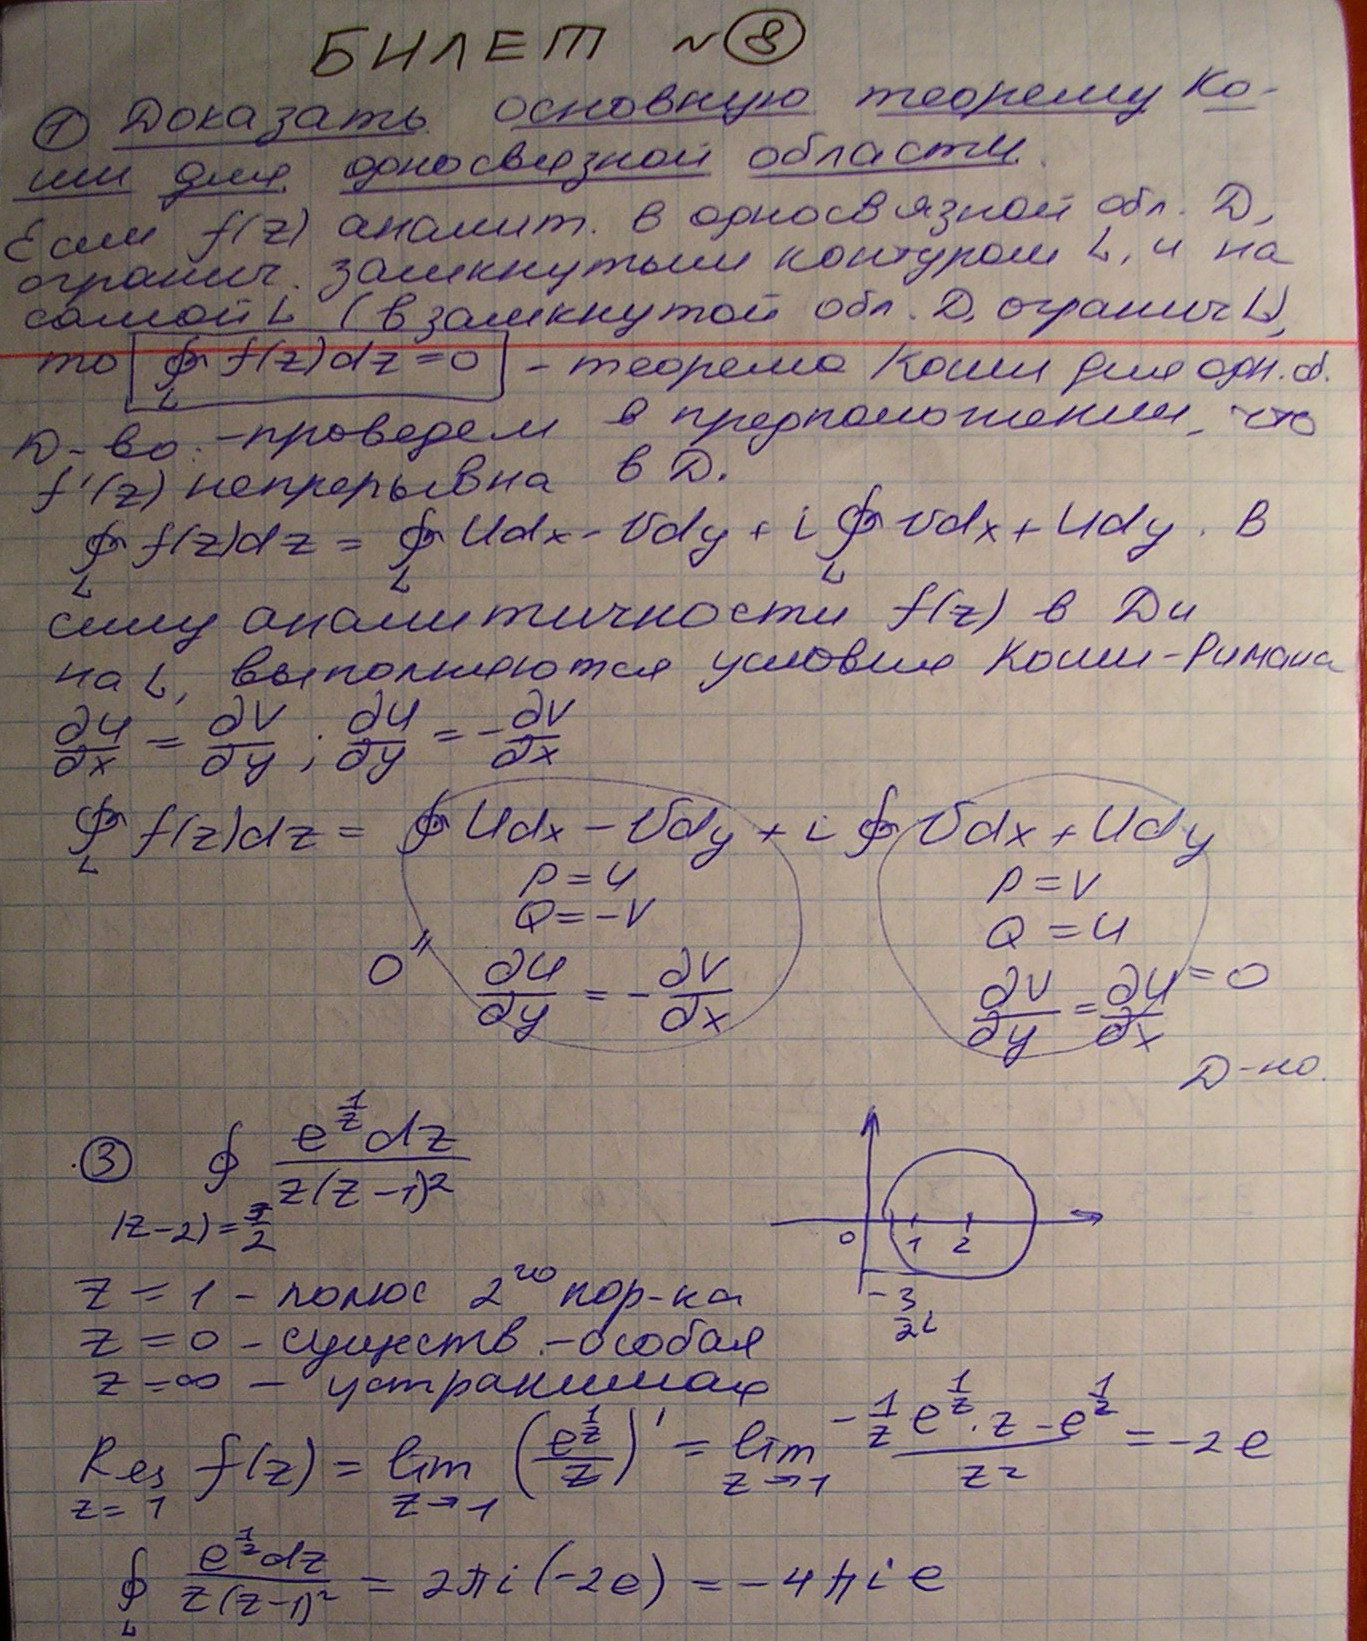 БИЛЕТ № 8
① Доказать основную теорему Ко-
ши для односвязной области.
Если f(z) аналит. в односвязной обл. D,
огранич. замкнутым контуром L, и на
самой L (в замкнутой обл. D, огранич L),
то ∮_L f(z)dz = 0 - теорема Коши для одн. об.
Д-во: - проведем в предположении, что
f'(z) непрерывна в D.
∮_L f(z)dz = ∮_L Udx - Vdy + i ∮_L Vdx + Udy. В
силу аналитичности f(z) в D и
на L, выполняются условия Коши-Римана
∂U/∂x = ∂V/∂y ; ∂U/∂y = -∂V/∂x
∮_L f(z)dz = ∮ Udx - Vdy + i ∮ Vdx + Udy
P = U P = V
Q = -V Q = U
0 = ∂U/∂y = -∂V/∂x ∂V/∂y = ∂U/∂x = 0
Д-но.
③ ∮ e^(1/z) dz / z(z-1)²
|z-2| = 3/2
0 1 2
-3/2 i
z = 1 - полюс 2го пор-ка
z = 0 - существ. - особая
z = ∞ - устранимая
Res_(z=1) f(z) = lim_(z→1) (e^(1/z) / z)' = lim_(z→1) (-1/z e^(1/z) · z - e^(1/z)) / z² = -2e
∮_L e^(1/z) dz / z(z-1)² = 2πi(-2e) = -4πie